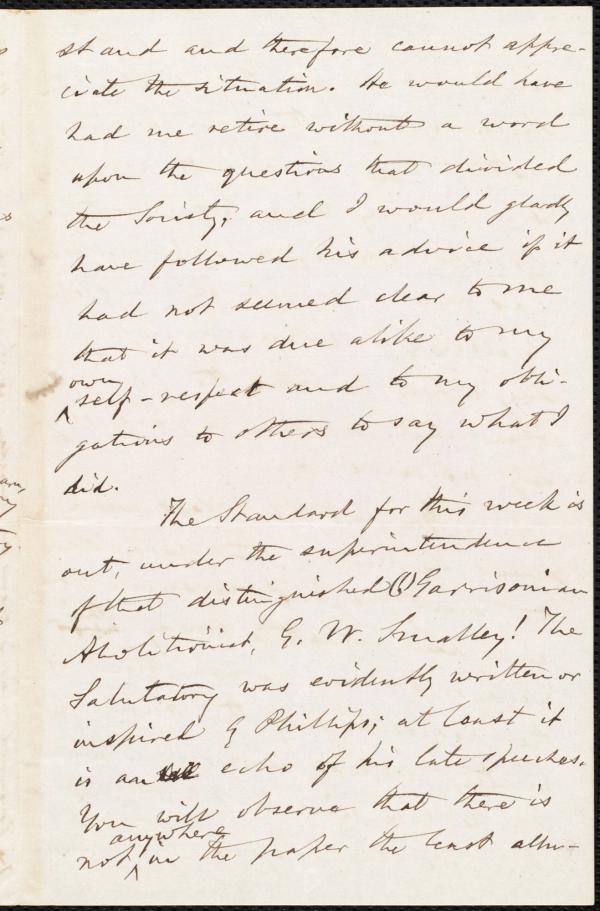 stand and therefore cannot appre-
ciate the situation. He would have
had me retire without a word
upon the questions that divided
the Society, and I would gladly
have followed his advice if it
had not seemed clear to me
that it was due alike to my
own
self-respect and to my obli-
gations to others to say what I
did.
The Standard for this week is
out, under the superintendence
of that distinguished (!) Garrisonian
Abolitionist, G. W. Smalley! The
Salutatory was evidently written or
inspired by Phillips; at least it
is an echo of his late speeches.
You will observe that there is
anywhere
not in the paper the least allu-